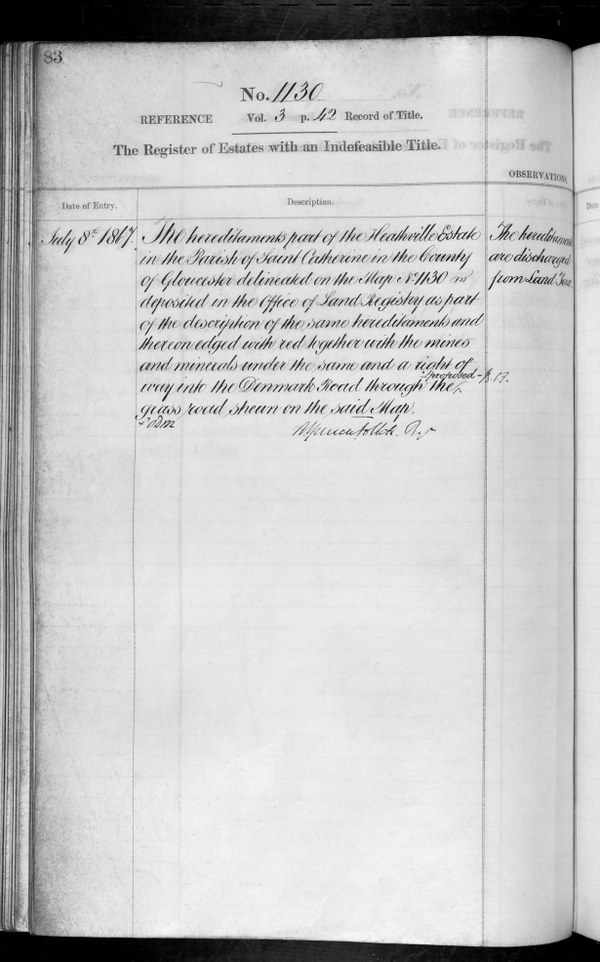 83
No. 1130
REFERENCE Vol. 3 p. 42 Record of Title.
The Register of Estates with an Indefeasible Title.
OBSERVATIONS.
Date of Entry.
Description.
July 8th 1867.
The hereditaments part of the Heathville Estate
in the Parish of Saint Catherine in the County
of Gloucester delineated on the Map No. 1130
deposited in the Office of Land Registry as part
of the description of the same hereditaments and
thereon edged with red together with the mines
and minerals under the same and a right of
proposed
way into the Denmark Road through the
grass road shewn on the said Map.
The hereditaments
are discharged
from Land Tax